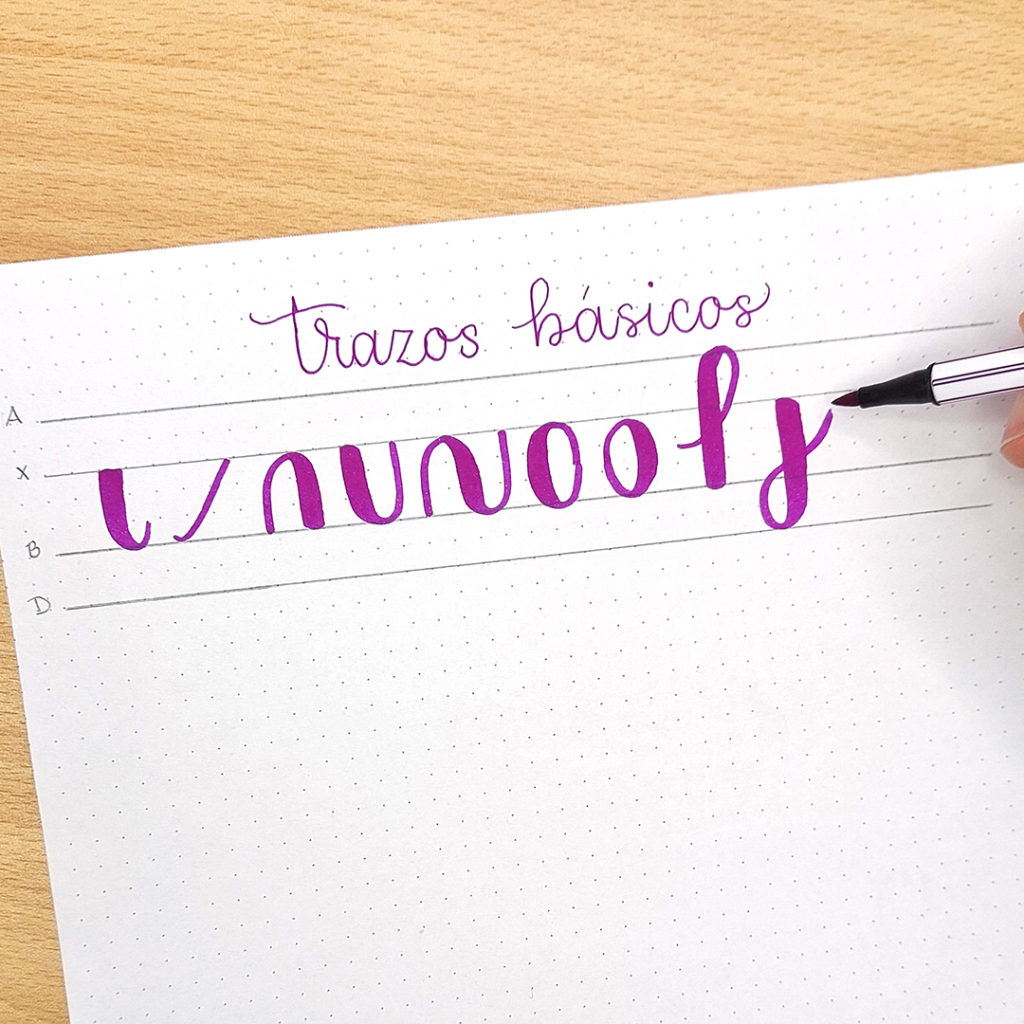 trazos básicos
A
X
B
D